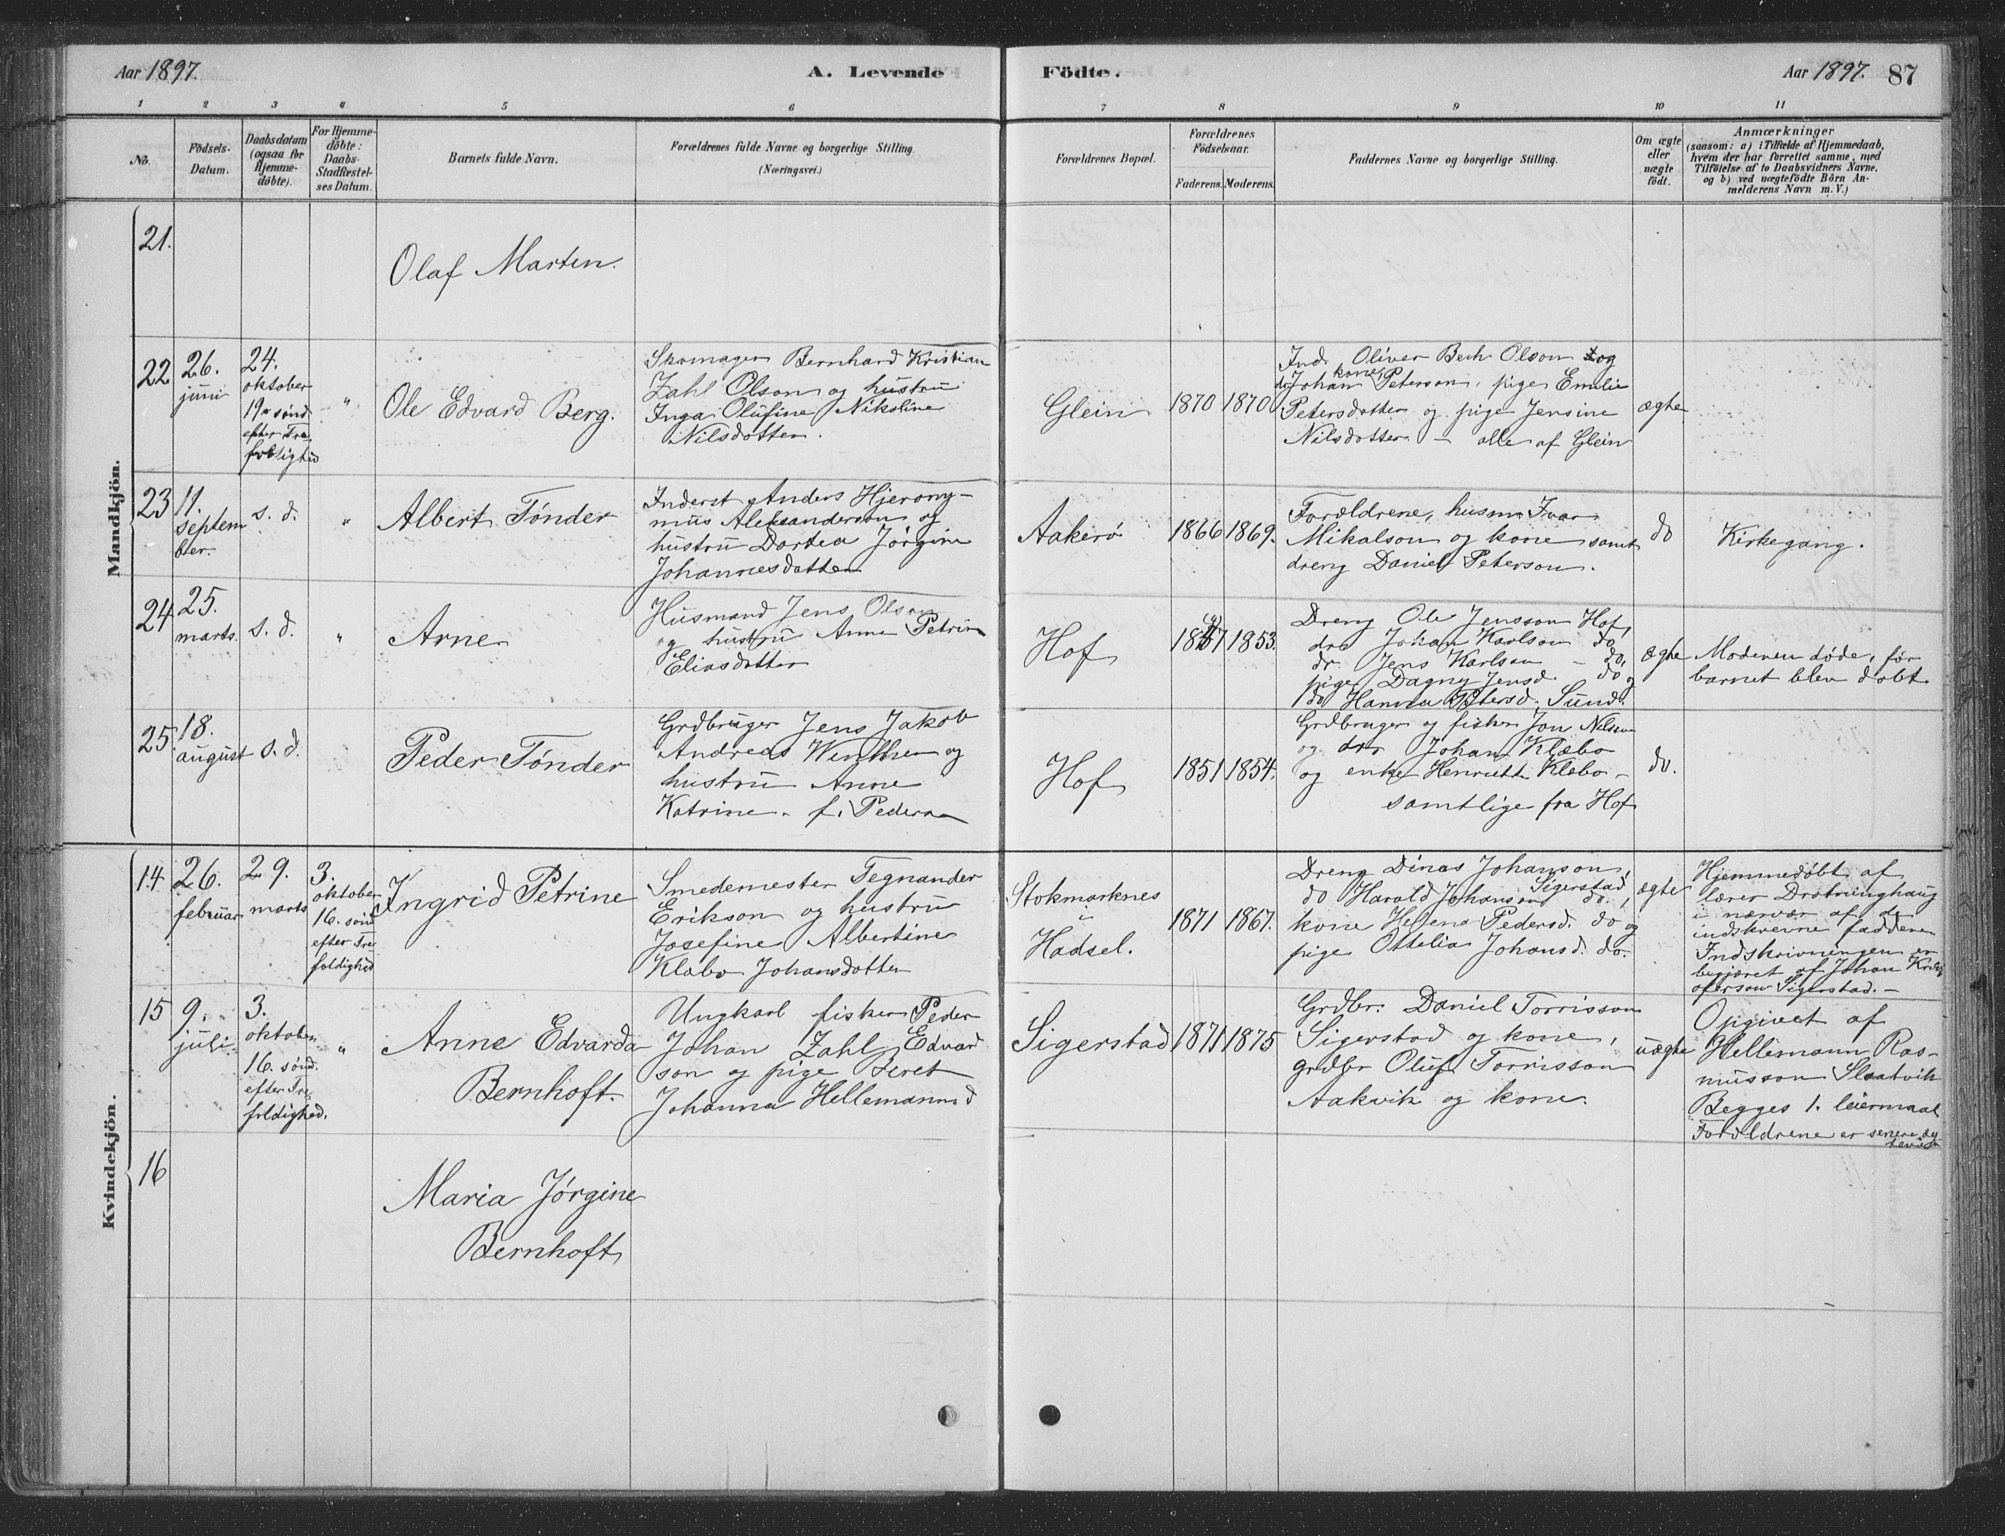 Aar 1897.
A. Levende
Födte.
Aar 1897. 87
1 2 3 4 5 6 7 8 9 10 11
No.
Födsels-
Datum.
Daabsdatum
(ogsaa for
Hjemme-
döbte).
For Hjemme-
döbte:
Daabs-
Stadfæstel-
ses Datum.
Barnets fulde Navn.
Forældrenes fulde Navne og borgerlige Stilling.
(Næringsvei.)
Forældrenes Bopæl.
Forældrenes
Födselsaar.
Faderens. Moderens.
Faddernes Navne og borgerlige Stilling.
Om ægte
eller
uægte
födt.
Anmærkninger
(saasom: a) i Tilfælde af Hjemmedaab,
hvem der har forrettet samme, med
Tilföielse af to Daabsvidners Navne,
og b) ved uægtefödte Börn An-
melderens Navn m. V.)
Mandkjön.
21.
Olaf Marten.
22
26.
juni
24.
oktober
19e sönd
efter Tre
foldighed
"
Ole Edvard Berg.
Skomager Bernhard Kristian
Zahl Olson og hustru
Inga Olufine Nikoline
Nilsdotter.
Glein
1870 1870
Ind. Oliver Bech Olson og
kone
do Johan Peterson, pige Emilie
Petersdotter og pige Jensine
Nilsdotter. – alle af Glein
ægte
23
11.
septem
ber.
s. d.
"
Albert Tønder
Inderst Anders Hjerony-
mus Aleksanderson og
hustru Dortea Jørgine
Johannesdotter
Aakerø
1866 1869.
Forældrene, husm Ivar
Mikalson og kone samt
dreng Daniel Peterson.
do
Kirkegang.
24
25.
marts.
s. d.
"
Arne
Husmand Jens Olson
og hustru Anne Petrine
Eliasdotter
Hof
1853.
Dreng Ole Jensson Hof,
dr. Johan Karlson do
dr. Jens Karlson – do.
pige Dagny Jensd. do og
do Hanna Petersd. Sund.
ægte
Moderen døde, før
barnet blev døbt.
25.
18.
august
s. d.
Peder Tønder
Grdbruger Jens Jakob
Andreas Winther og
hustru Anne
Katrine. f. Pedersen
Hof
1851 1854.
Grdbruger og fisker Jon Nilson
og dr. Johan Klæbo
og enke Henriette Klæbo –
samtlige fra Hof
do.
Kvindekjön.
14.
26.
februar
29.
marts
3.
oktober
16. sönd
efter Tre
foldighed
Ingrid Petrine
Smedemester Tegnander
Erikson og hustru
Josefine Albertine
Klæbo Johansdotter
Stokmarknes
i
Hadsel.
1871 1867.
Dreng Dinas Johanson,
Sigerstad,
do Harald Johanson do.,
kone Helena Pedersd. do og
pige Ottelia Johansd. do.
ægte
Hjemmedøbt af
lærer Drotninghaug
i nærvær af de
indskrevne faddere
Indskrivningen er
begjæret af Johan Krist-
oferson Sigerstad. –
15
9.
juli
3.
oktober
16. sönd.
efter Tre
foldighed.
"
Anne Edvarda
Bernhoft.
Ungkarl fisker Peder
Johan Zahl Edvard
son og pige Beret
Johanna Hellemannsd
Sigerstad
1871 1875
Grdbr. Daniel Torrisson
Sigerstad og kone,
grdbr Oluf Torrisson
Aakvik og kone.
uægte
Opgivet af
Hellemann Ras-
musson Slaatvik
Begges 1. leiermaal
Forældrene er senere
16
Maria Jørgine
Bernhoft,